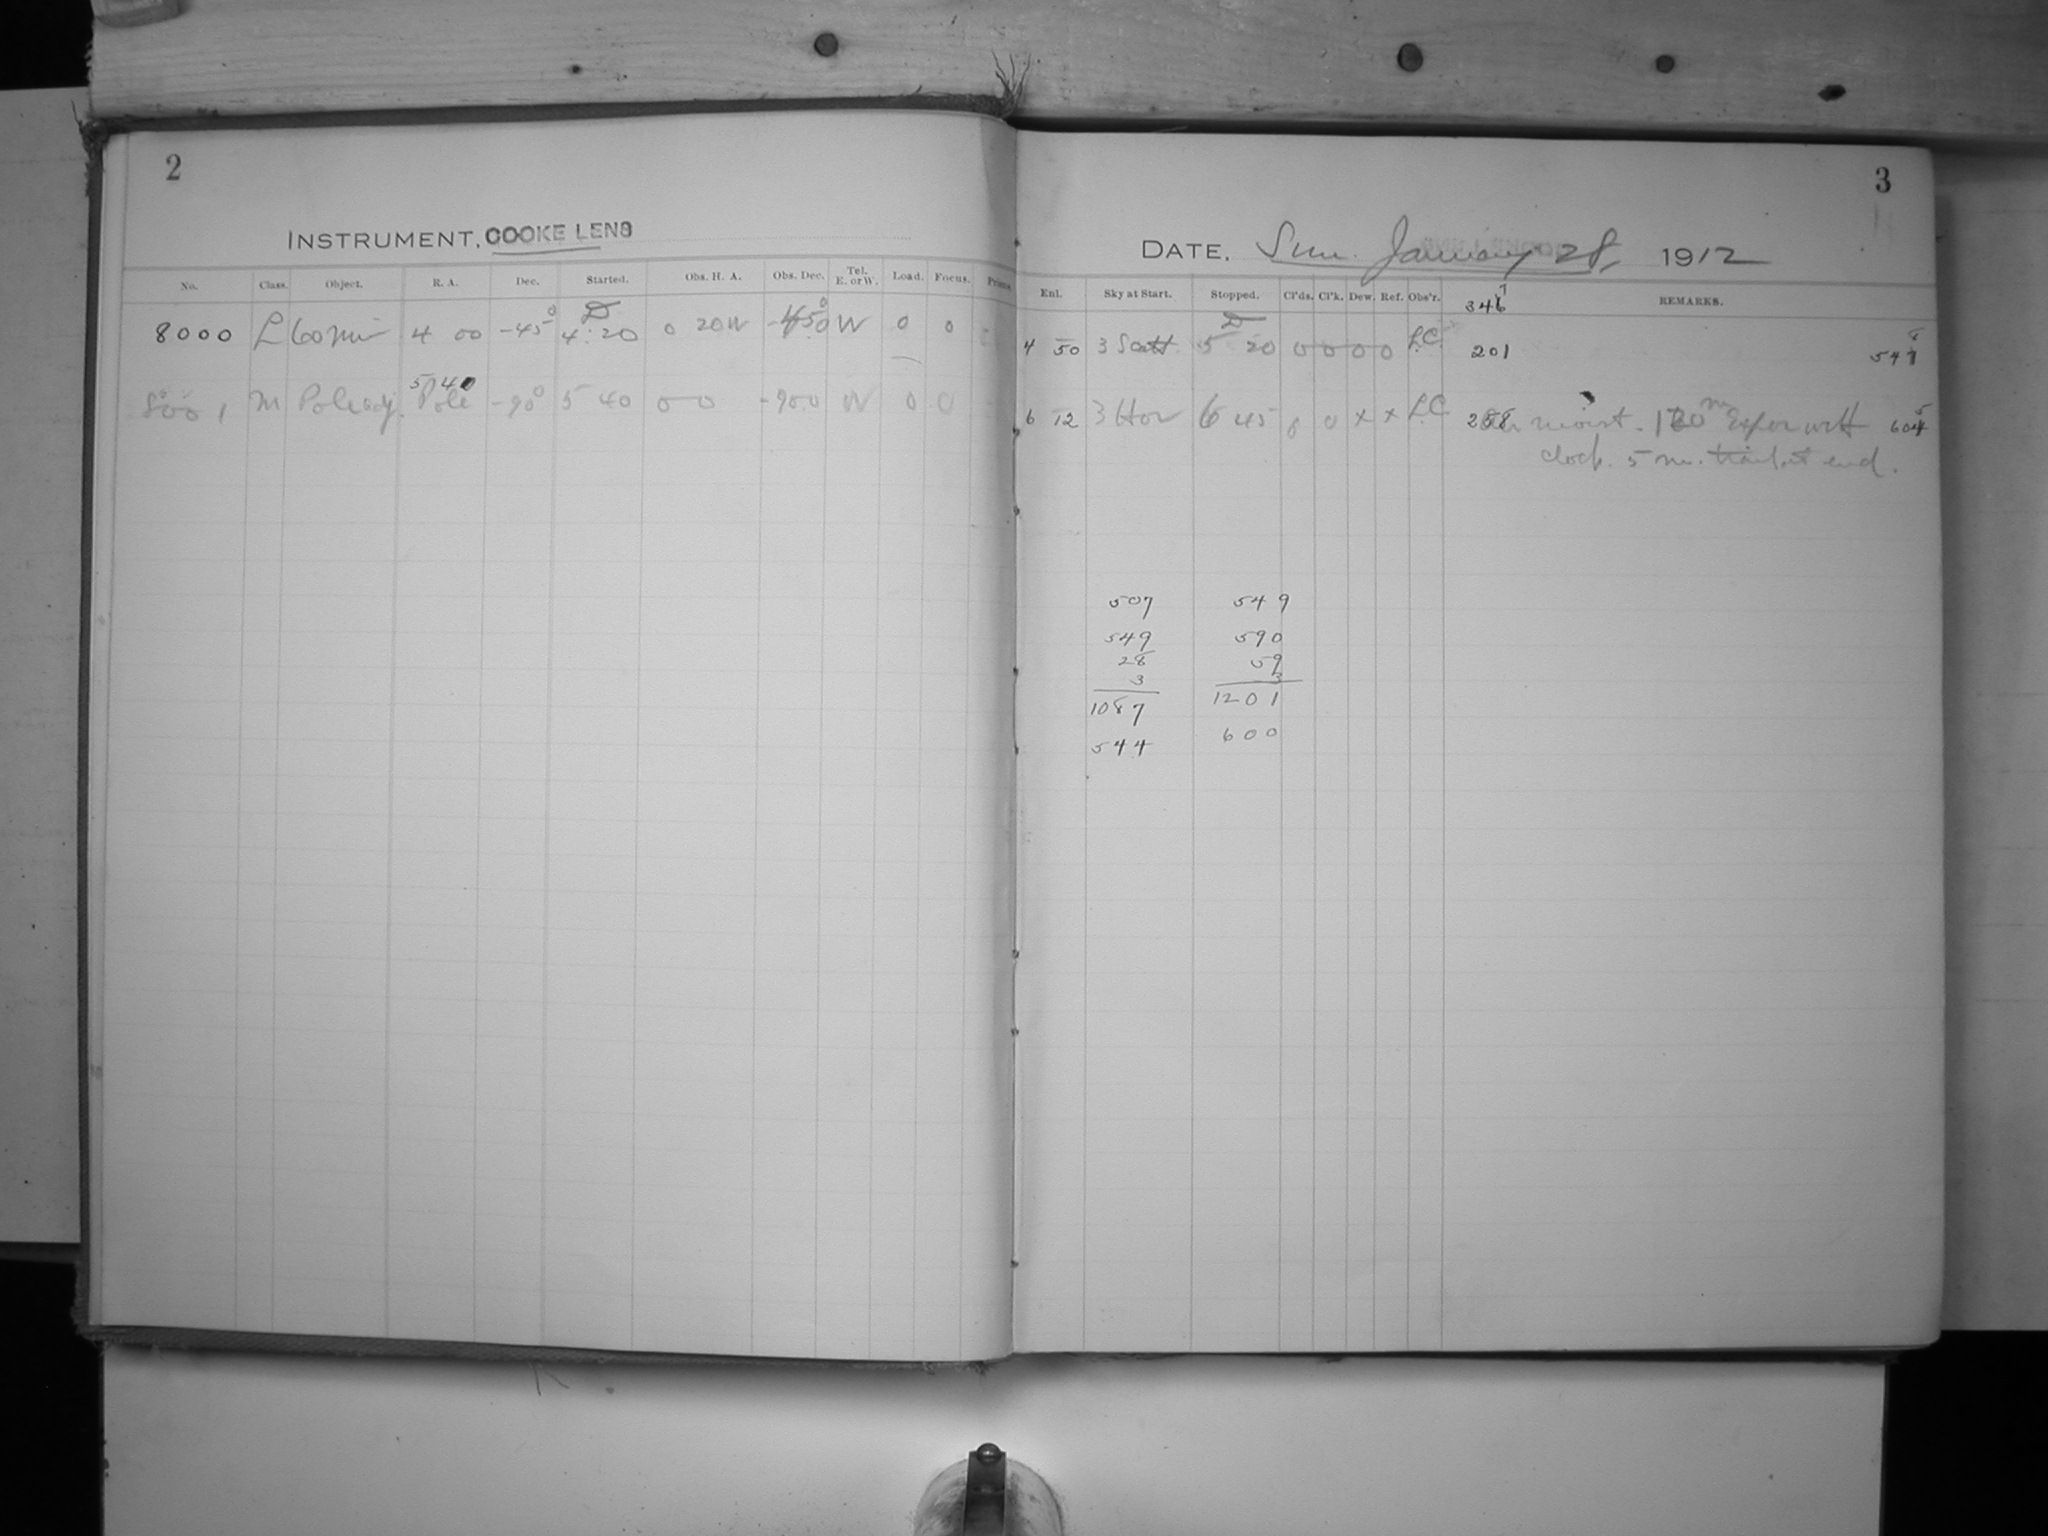 2
INSTRUMENT, COOKE LENS
No. Class. Object. R. A. Dec. Started. Obs. H. A. Obs. Dec. Tel. E. or W. Load. Focus. Prisms
8000 L 60 min 4 00 -45° 4:20 0 20W -45.0 W 0 0
5 40
8001 M Pole adj. Pole -90° 5 40 0 0 -90.0 W 0 0
3
DATE, Sun. January 28, 1912
Enl. Sky at Start. Stopped. Cl'ds. Cl'k. Dew. Ref. Obs'r. REMARKS.
346
4 50 3 Scatt. 5 20 0 0 0 0 L.C. 201
6 12 3 Hor 6 45 0 0 x x L.C. moist. Expos with
clock. 5 m. trail at end.
507 549
549 590
28 59
3 3
1087 1201
544 600